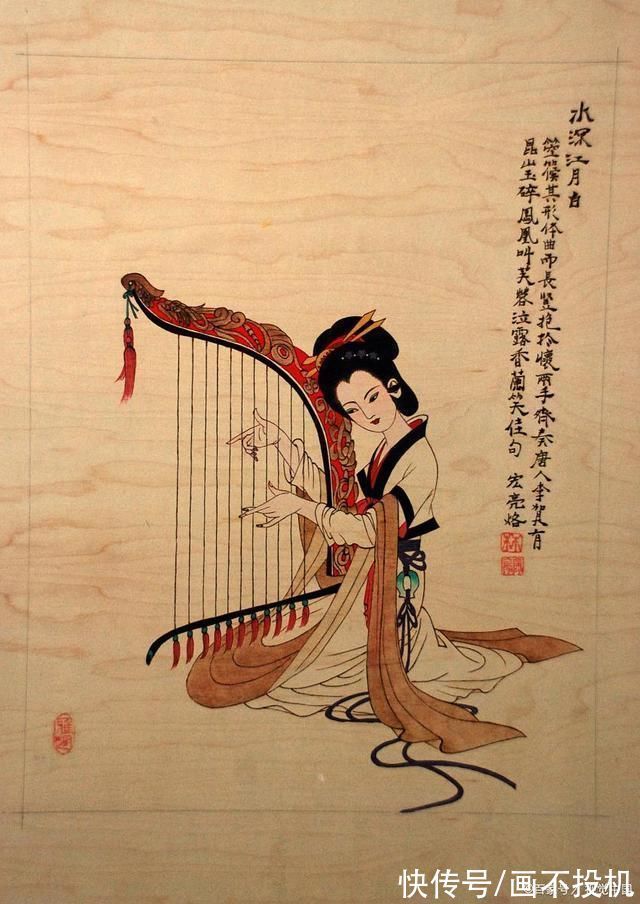 水深江月白
箜篌其形体曲而長豎抱於懷兩手齊奏唐人李賀有
昆山玉碎鳳凰叫芙蓉泣露香蘭笑佳句 宏亮烙
快传号/画不投机